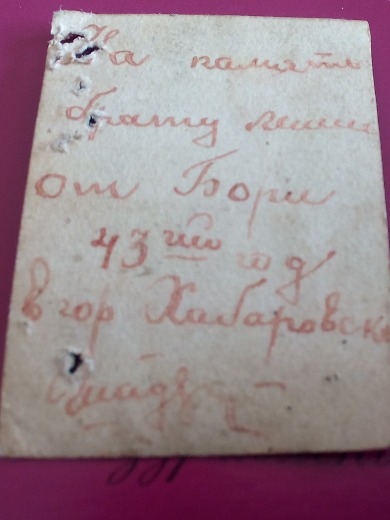 На память
брату Лёни
от Бори
43 ий год
в гор Хабаровске